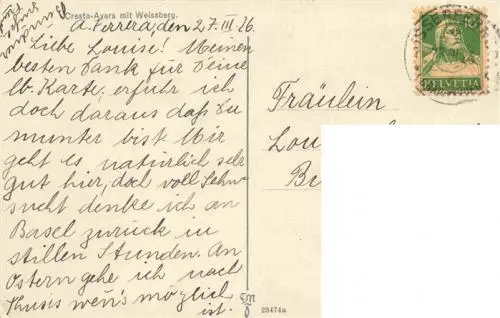 Cresta-Avers mit Weissberg.
A. Ferrera, den 27. III. 26.
Liebe Louise! Meinen
besten Dank für Deine
lb. Karte, erfuhr ich
doch daraus daß Du
munter bist. Mir
geht es natürlich sehr
gut hier, doch voll Sehn
sucht denke ich an
Basel zurück in
stillen Stunden. An
Ostern gehe ich nach
Thusis wen's möglich
ist.
Fräulein
Lou
B
10
HELVETIA
23474a